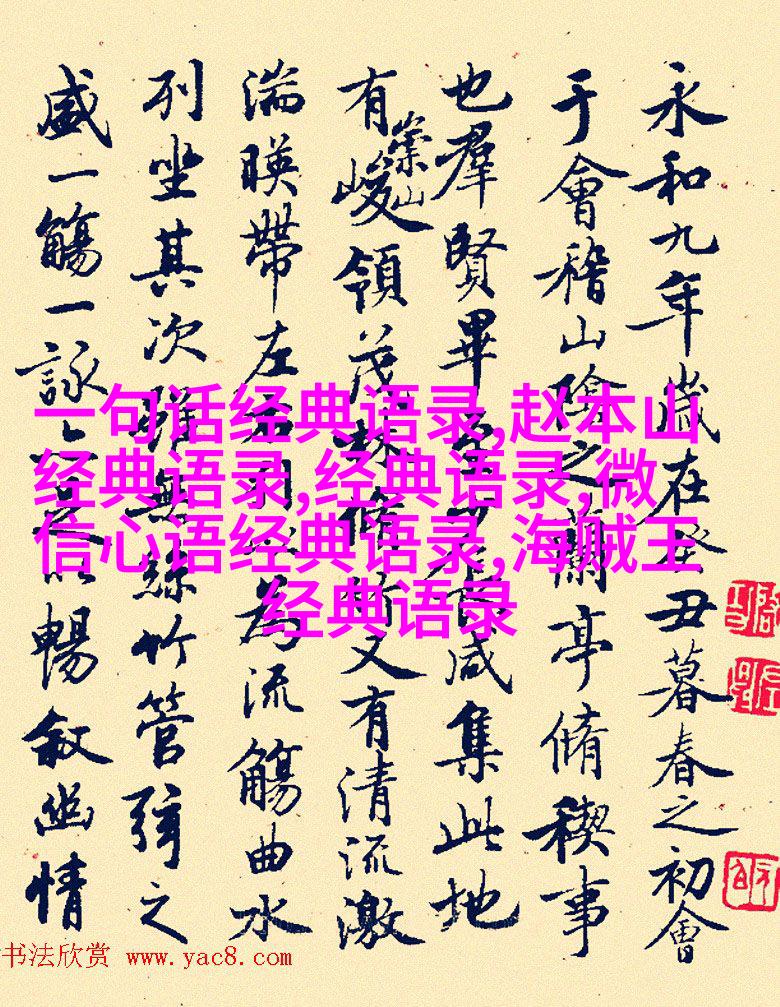 永和九年歲在癸丑暮春之初會
于會稽山陰之蘭亭脩稧事
也羣賢畢至少長咸集此地
有崇山峻領茂林脩竹又有清流激
湍暎帶左右引以為流觴曲水
列坐其次雖無絲竹管弦之
盛一觴一詠亦足以暢敘幽情
一句话经典语录,赵本山
经典语录,经典语录,微
信心语经典语录,海贼王
经典语录
书法欣赏 www.yac8.com